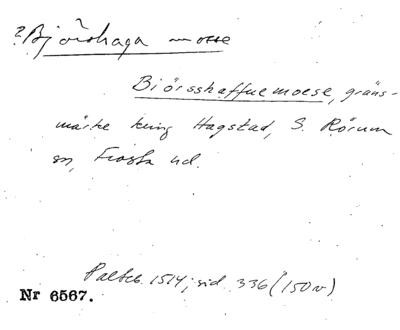 ? Björshaga mosse
Biörsshaffuemoese, gräns-
märke kring Hagstad, S. Rörum
sn, Frosta hd.
Palteb. 1514; sid. 336 (150v)
Nr 6567.